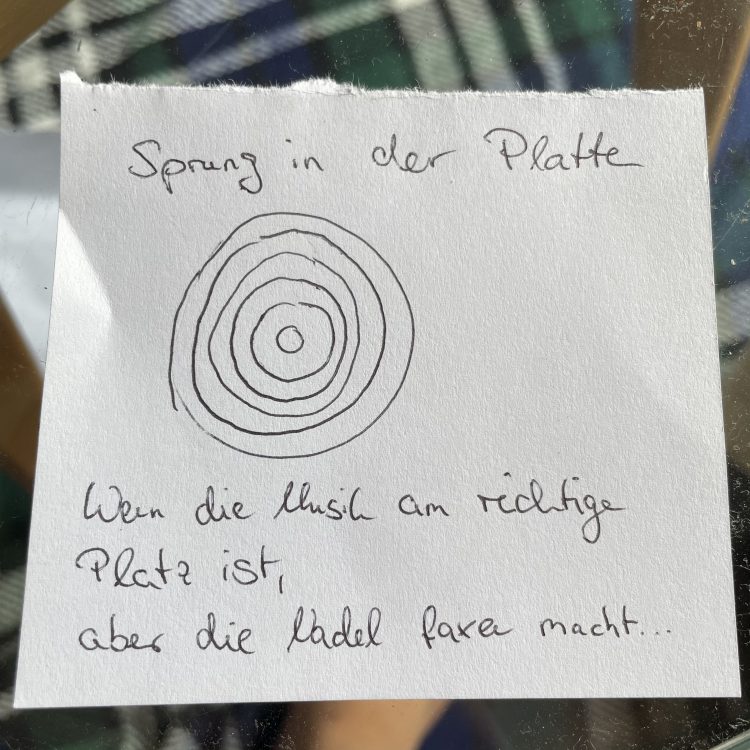 Sprung in der Platte
Wenn die Musik am richtige
Platz ist,
aber die Nadel faxen macht...